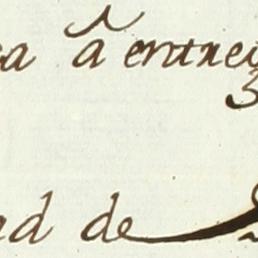 a â entre
3
ad de